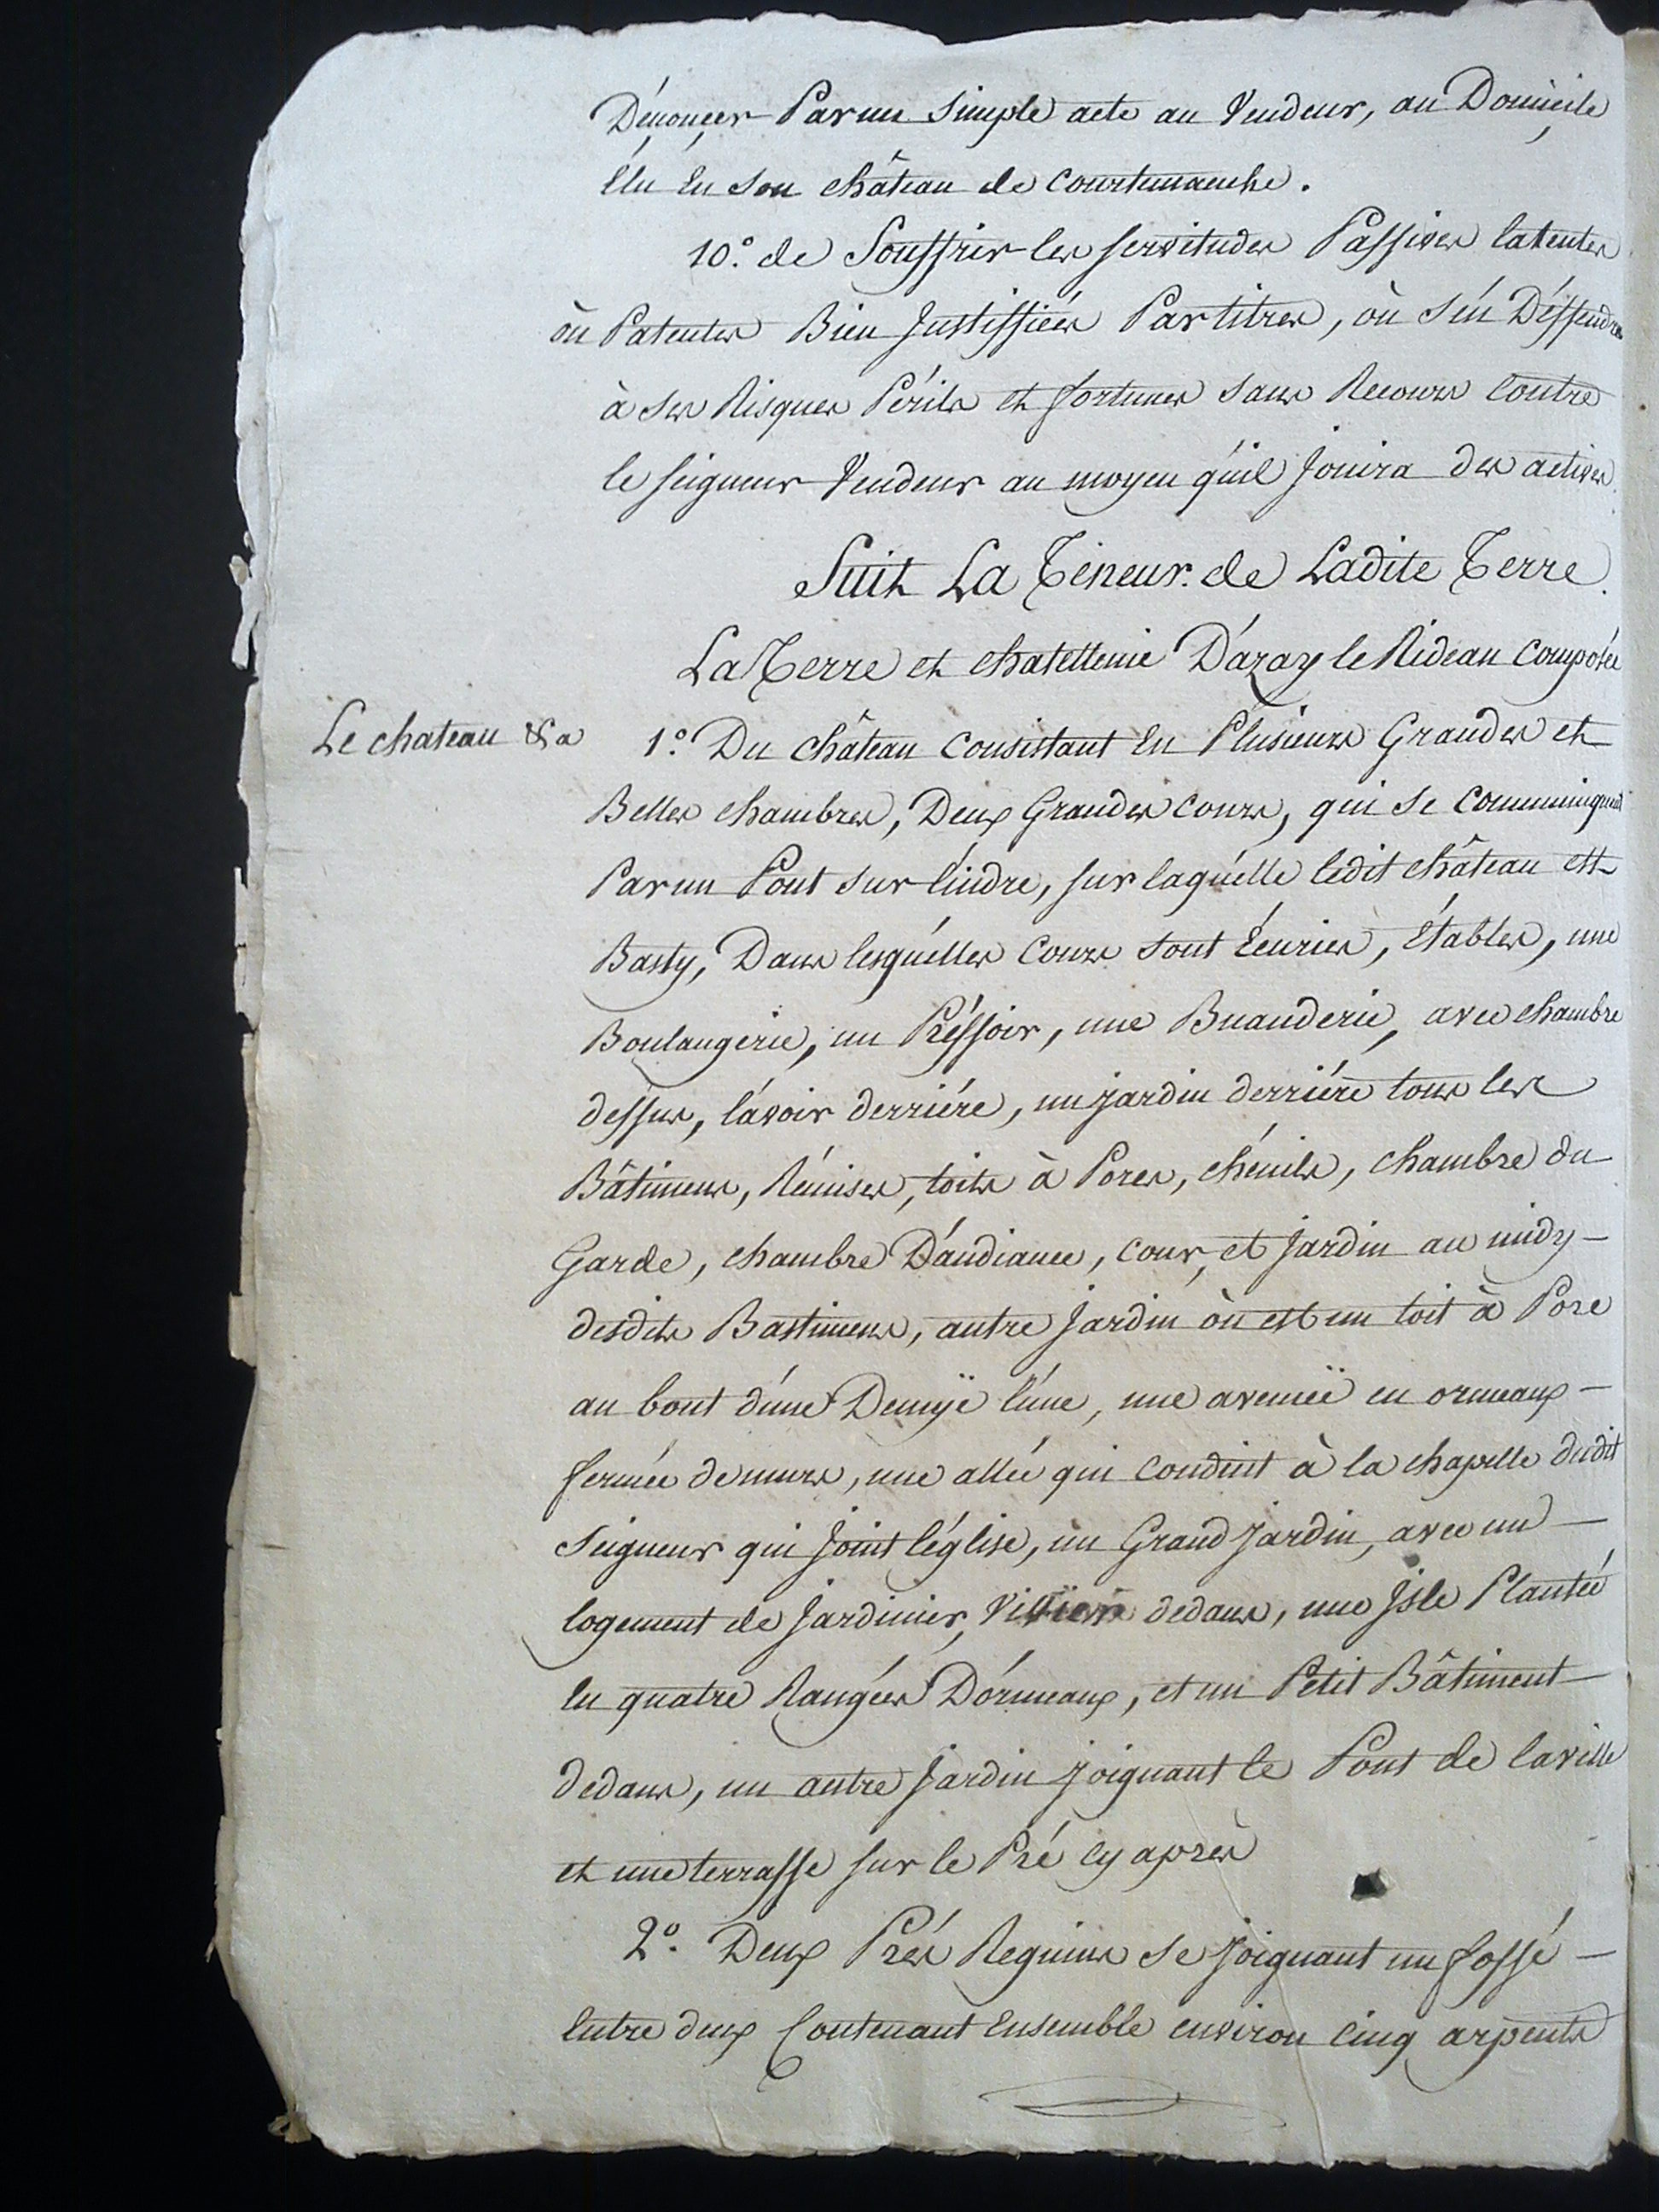 Dénonçer Par un Simple acte au Vendeur, au Domicile
Elu En Son château de Courtemanche.
10.° de Souffrir les servitudes Passives latentes
où Patentes Bien Justiffiées Par titres, où s'én Déffendre
à ses Risques Périls et fortunes sans Recours Contre
le seigneur Vendeur au moyen qu'il Jouira des actives.
Suit La Téneur de Ladite Terre.
La Terre et chatellenie D'azay le Rideau Composée
Le chateau &a
1.° Du château Consistant En Plusieurs Grandes et
Belles chambres, Deux Grandes Cours, qui se Communiquent
Par un Pont sur l'indre, sur laquélle ledit château est
Basty, Dans lesquélles Cours sont Écuries, Étables, une
Boulangerie, un Préssoir, une Buanderie, avec chambre
dessus, lávoir derriére, un jardin derriére tous les
Bâtimens, Rémises, toits à Porcs, chénils, chambre du
Garde, chambre D'audiance, cour, et Jardin au midy
desdits Bastimens, autre Jardin où est un toit à Porc
au bout d'une Demÿe lune, une avenuë en ormeaux
fermée de murs, une allée qui Conduit à la chapelle dudit
Seigneur qui Joint l'église, un Grand Jardin, avec un
logement de Jardinier, Vivier dedans, une Isle Plantée
En quatre Rangées D'ormeaux, et un Petit Bâtiment
dedans, un autre Jardin joignant le Pont de la ville
et une terrasse sur le Pré Cy après
2.° Deux Prés Reguins se Joignant un fossé
Entre deux Contenant Ensemble environ Cinq arpents